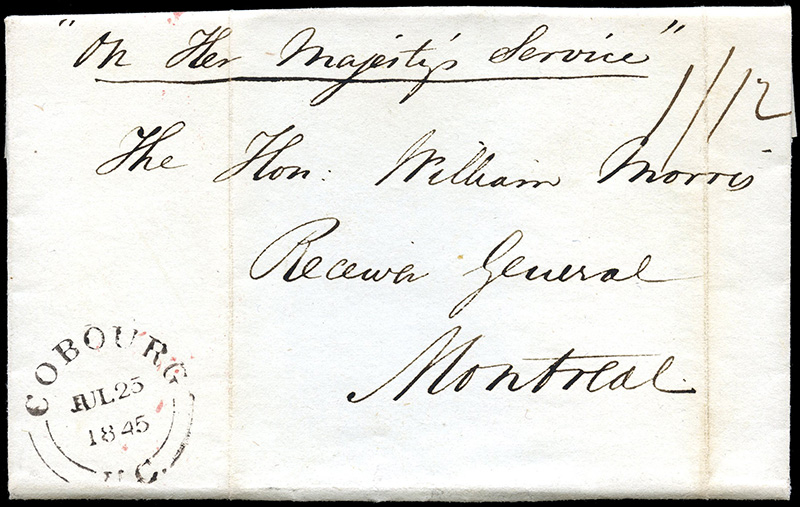 "On Her Majesty's Service"
1/12
The Hon: William Morris
Receiver General
Montreal.
COBOURG
JUL 25
1845
U.C.